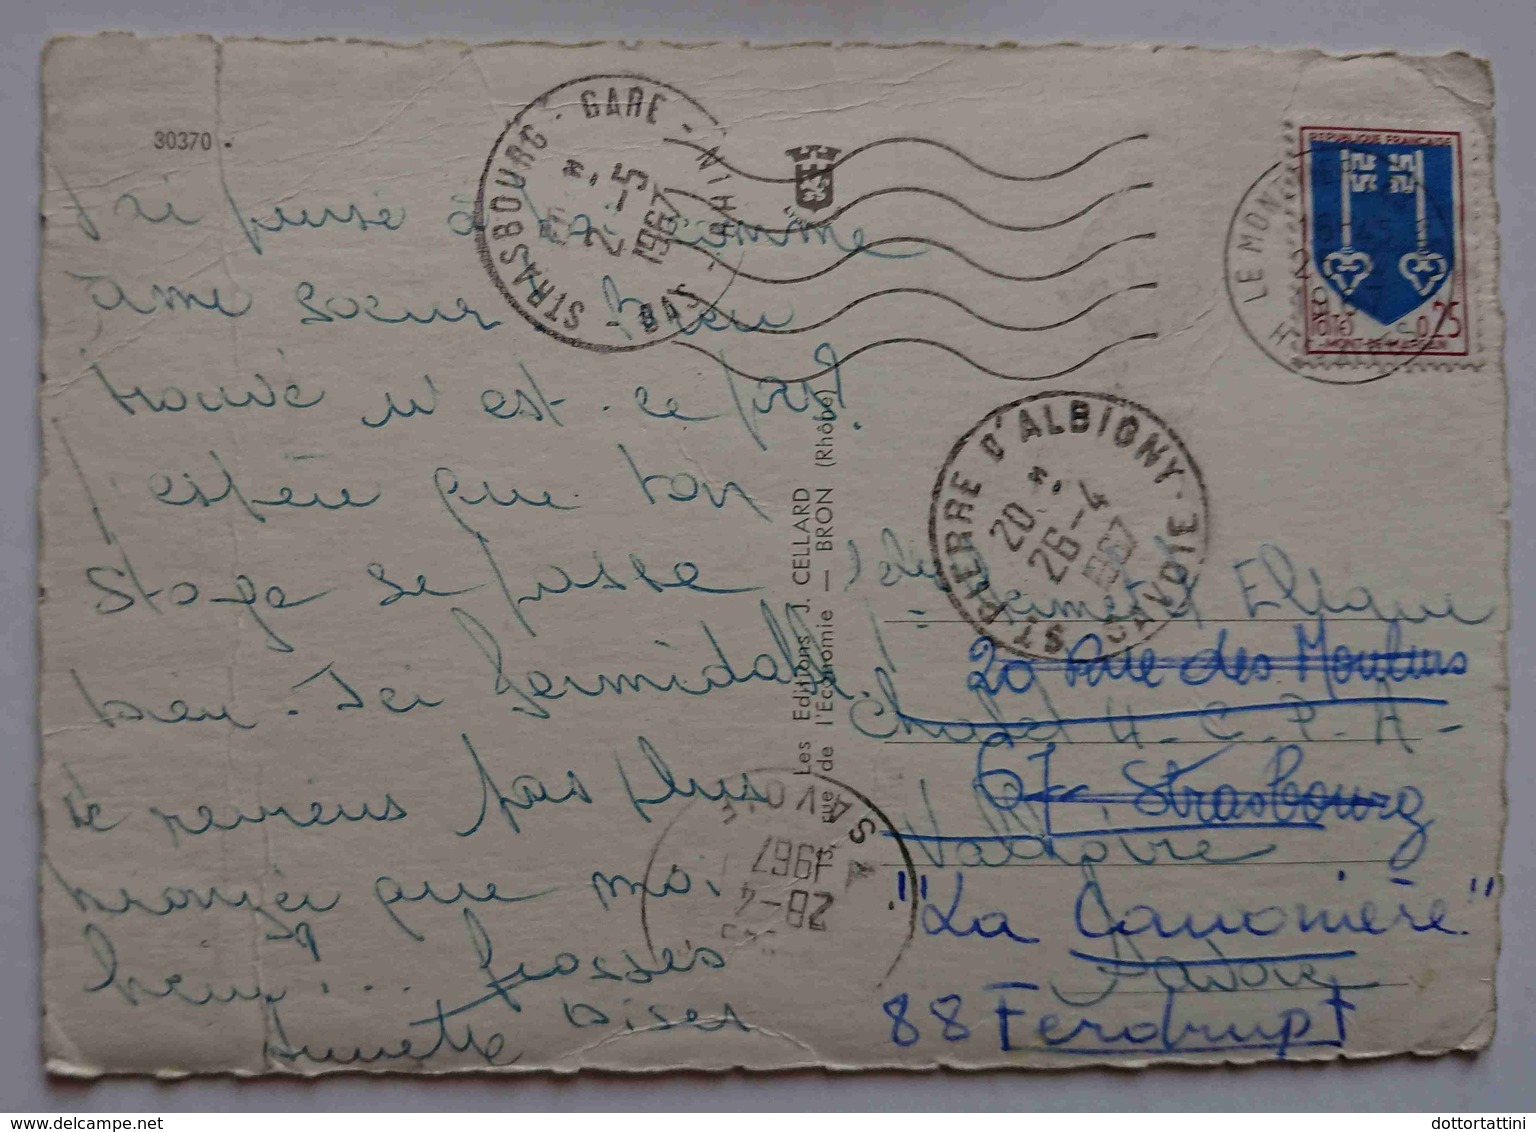 30370
J'ai pensé à toi comme
âme soeur bien
trouvé n'est-ce pas?
J'espère que ton
stage se passe
bien. Ici formidable!
Te reviens pas plus
bronzée que moi
hein? ... grosses
bises
Annette
Les Editions J. CELLARD
rue de l'Economie — BRON (Rhône)
STRASBOURG-GARE - BAS-RHIN
2-5
1967
REPUBLIQUE FRANCAISE
POSTES 0,25
MONT-DE-MARSAN
LE MONT
ST PIERRE D'ALBIGNY - SAVOIE
20
26-4
1967
SAVOIE
28-4
1967
Elique
20 Rue des Moulins
Chalet U.C.P.A-
67 Strasbourg
Valloire
"La Canonière"
Savoie
88 Ferdrupt
dottortattini